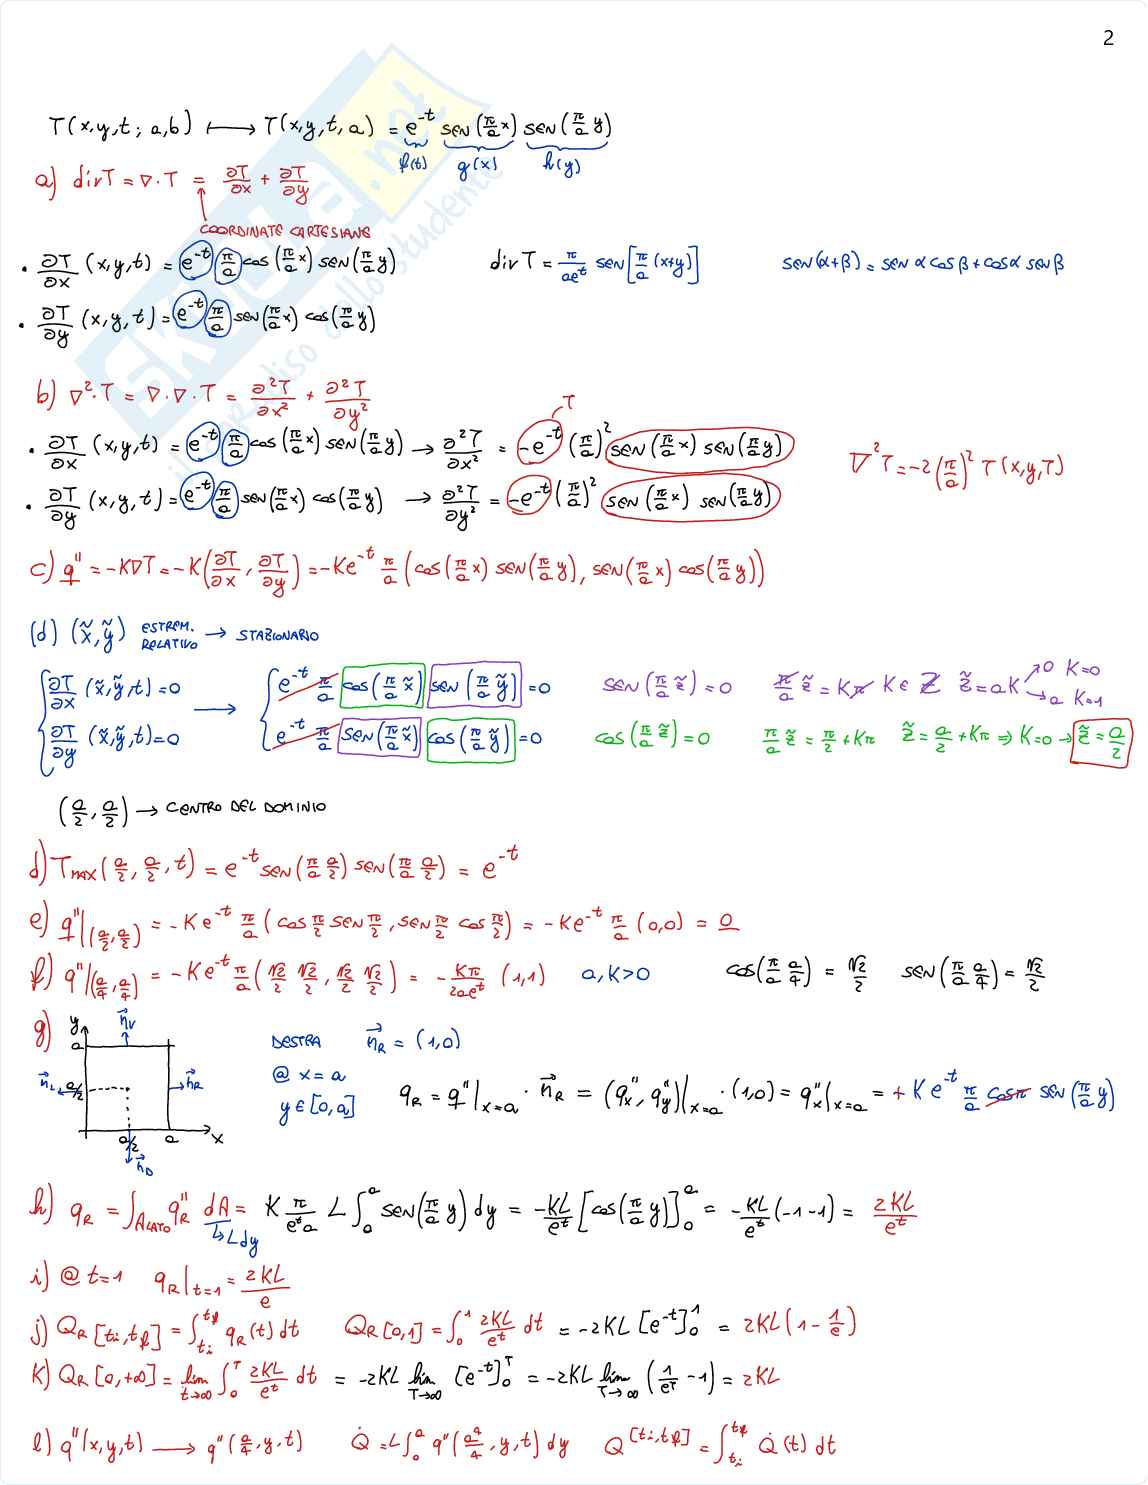 2
T(x,y,t; a,b) ⟼ T(x,y,t,a) = e^{-t} sen(π/a x) sen(π/a y)
f(t) g(x) h(y)
a) div T = ∇·T = ∂T/∂x + ∂T/∂y
COORDINATE CARTESIANE
• ∂T/∂x (x,y,t) = e^{-t} π/a cos(π/a x) sen(π/a y) div T = π/(ae^t) sen[π/a (x+y)] sen(α+β) = sen α cos β + cos α sen β
• ∂T/∂y (x,y,t) = e^{-t} π/a sen(π/a x) cos(π/a y)
b) ∇²·T = ∇·∇·T = ∂²T/∂x² + ∂²T/∂y²
T
• ∂T/∂x (x,y,t) = e^{-t} π/a cos(π/a x) sen(π/a y) → ∂²T/∂x² = -e^{-t} (π/a)² sen(π/a x) sen(π/a y) ∇²T = -2(π/a)² T(x,y,T)
• ∂T/∂y (x,y,t) = e^{-t} π/a sen(π/a x) cos(π/a y) → ∂²T/∂y² = -e^{-t} (π/a)² sen(π/a x) sen(π/a y)
c) q'' = -K∇T = -K(∂T/∂x, ∂T/∂y) = -Ke^{-t} π/a (cos(π/a x) sen(π/a y), sen(π/a x) cos(π/a y))
(d) (x̃,ỹ) ESTREM. RELATIVO → STAZIONARIO
∂T/∂x (x̃,ỹ,t) = 0 → e^{-t} π/a cos(π/a x̃) sen(π/a ỹ) = 0 sen(π/a z̃) = 0 π/a z̃ = Kπ K∈ℤ z̃ = aK → 0 K=0 → a K=1
∂T/∂y (x̃,ỹ,t) = 0 e^{-t} π/a sen(π/a x̃) cos(π/a ỹ) = 0 cos(π/a z̃) = 0 π/a z̃ = π/2 + Kπ z̃ = a/2 + Kπ ⇒ K=0 → z̃ = a/2
(a/2, a/2) → CENTRO DEL DOMINIO
d) T_MAX(a/2, a/2, t) = e^{-t} sen(π/a a/2) sen(π/a a/2) = e^{-t}
e) q''|(a/2,a/2) = -Ke^{-t} π/a (cos π/2 sen π/2, sen π/2 cos π/2) = -Ke^{-t} π/a (0,0) = 0
f) q''|(a/4,a/4) = -Ke^{-t} π/a (√2/2 √2/2, √2/2 √2/2) = -Kπ/(2ae^t) (1,1) a,K>0 cos(π/a a/4) = √2/2 sen(π/a a/4) = √2/2
g) y n⃗_U
a
DESTRA n⃗_R = (1,0)
n⃗_L a/2 n⃗_R
@ x=a
y∈[0,a] q_R = q''|x=a · n⃗_R = (q''_x, q''_y)|x=a · (1,0) = q''_x|x=a = +Ke^{-t} π/a cosπ sen(π/a y)
a/2 a x
n⃗_D
h) q_R = ∫_{A LATO} q''_R dA = K π/(e^t a) L ∫_0^a sen(π/a y) dy = -KL/e^t [cos(π/a y)]_0^a = -KL/e^t (-1-1) = 2KL/e^t
↳ L dy
i) @ t=1 q_R|t=1 = 2KL/e
j) Q_R [ti,tf] = ∫_{ti}^{tf} q_R(t) dt Q_R [0,1] = ∫_0^1 2KL/e^t dt = -2KL [e^{-t}]_0^1 = 2KL(1 - 1/e)
K) Q_R [0,+∞] = lim_{t→∞} ∫_0^T 2KL/e^t dt = -2KL lim_{T→∞} [e^{-t}]_0^T = -2KL lim_{T→∞} (1/e^T - 1) = 2KL
l) q''(x,y,t) → q''(a/4,y,t) Q̇ = L∫_0^a q''(a/4,y,t) dy Q^{[ti,tf]} = ∫_{ti}^{tf} Q̇(t) dt